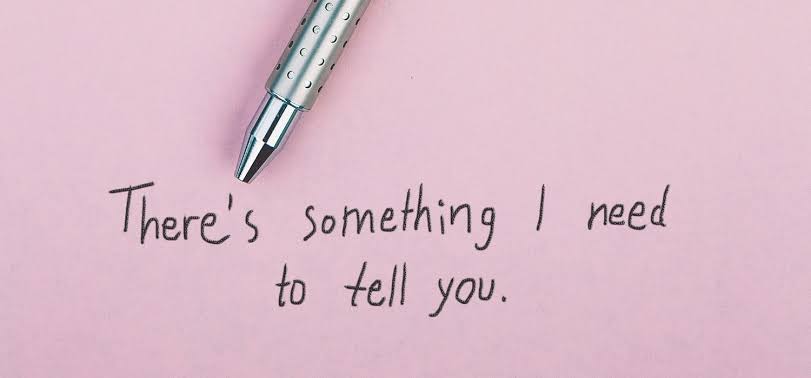 There's something I need
to tell you.